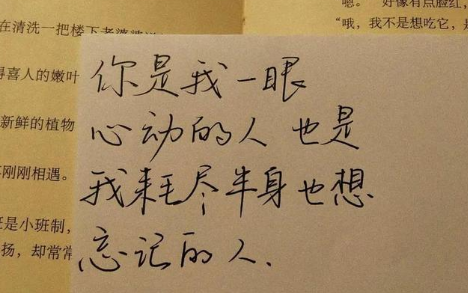 嗯。” 好像有点脸红,
“哦,我不是想吃它,
在清洗一把楼下老
喜人的嫩叶
新鲜的植物
刚刚相遇。
是小班制,
扬,却常常
你是我一眼
心动的人 也是
我耗尽半身也想
忘记的人.